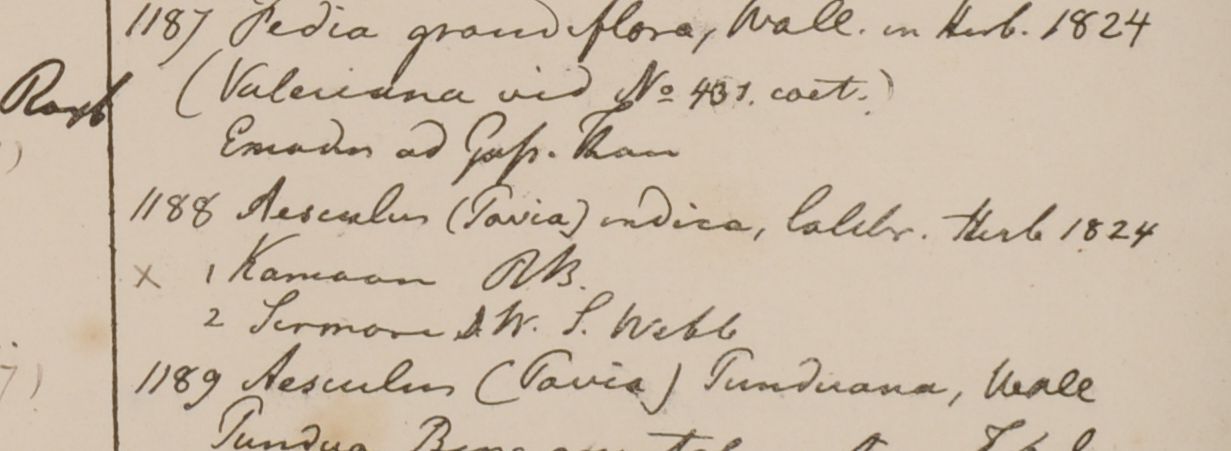 1187 Fedia grandiflora, Wall. in Herb. 1824
Roxb
(Valeriana vid No 431. coet.)
Emodus ad Gosf. Than
1188 Aesculus (Pavia) indica, Colebr. Herb 1824
x 1 Kamaon RB.
2 Sirmore W. S. Webb
1189 Aesculus (Pavia) Punduana, Wall
Pundua